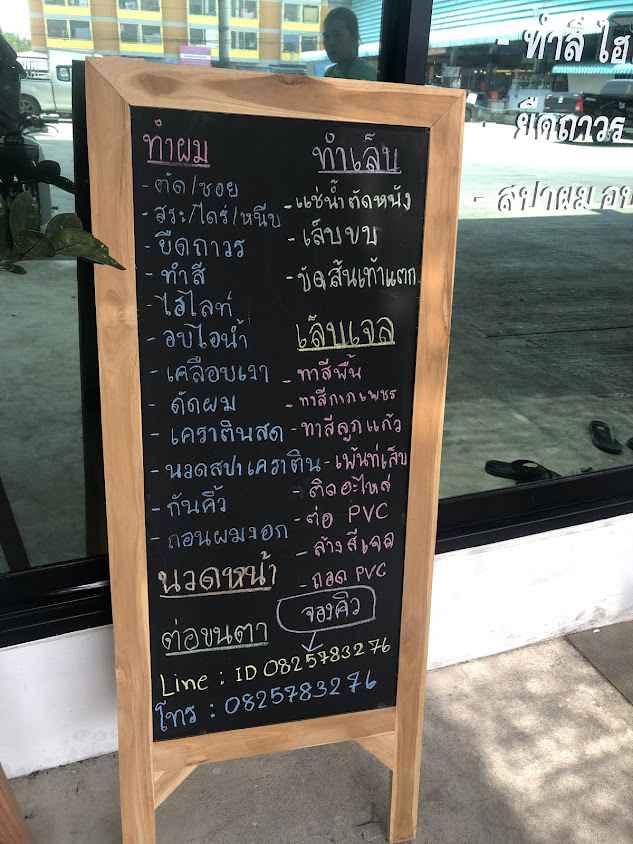 ทำผม
- ตัด/ซอย
- สระ/ไดร์/หนีบ
- ยืดถาวร
- ทำสี
- ไฮไลท์
- อบไอน้ำ
- เคลือบเงา
- ดัดผม
- เคราตินสด
- นวดสปาเคราติน
- กันคิ้ว
- ถอนผมหงอก
นวดหน้า
ต่อขนตา
ทำเล็บ
- แช่น้ำตัดหนัง
- เล็บขบ
- ขัดส้นเท้าแตก
เล็บเจล
- ทาสีพื้น
- ทาสีกากเพชร
- ทาสีลูกแก้ว
- เพ้นท์เล็บ
- ติดอะไหล่
- ต่อ PVC
- ล้างสีเจล
- ถอด PVC
จองคิว
Line : ID 0825783276
โทร : 0825783276
ทำสี ไฮ
ยืดถาวร
- สปาผม อบ